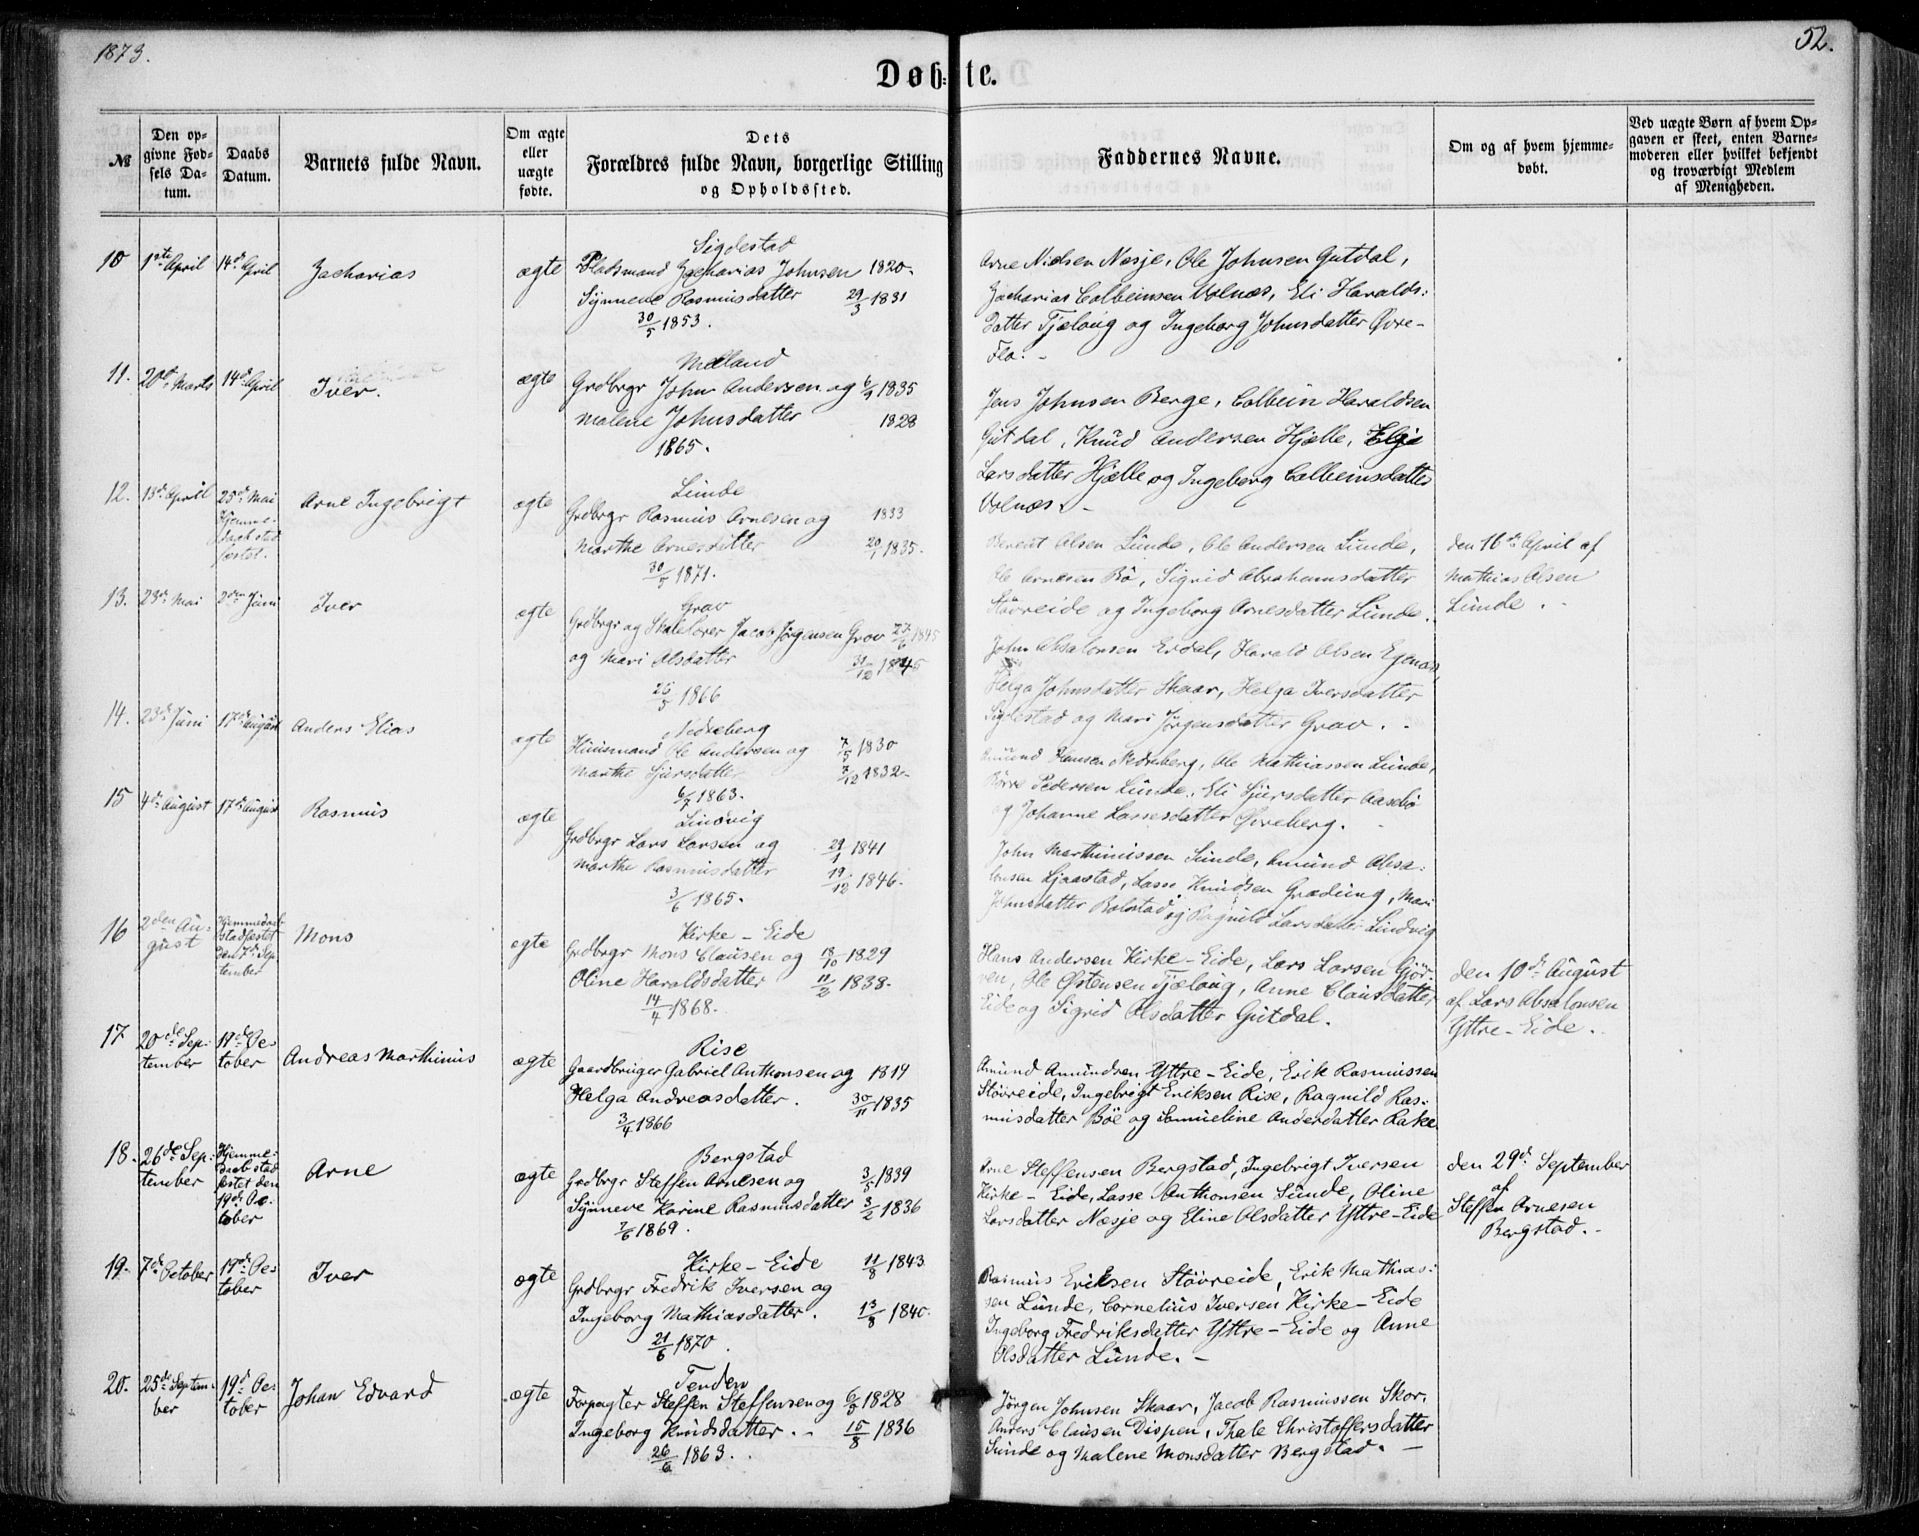 1873.
52.
Døbte.
№
Den opgivne Fødsels Datum.
Daabs Datum.
Barnets fulde Navn.
Om ægte eller uægte fødte.
Dets Forældres fulde Navn, borgerlige Stilling og Opholdssted.
Faddernes Navne.
Om og af hvem hjemmedøbt.
Ved uægte Børn af hvem Opgaven er skeet, enten Barnemoderen eller hvilket bekjendt og troværdigt Medlem af Menigheden.
10 1ste April 14de April Zacharias ægte
Sigdestad
Pladsmand Zacharias Johnsen 1820.
Synneve Rasmusdatter 29/3 1831
30/5 1853.
Arne Nielsen Nesje, Ole Johnsen Gutdal,
Zacharias Colbeinsen Volnæs, Eli Haralds-
datter Fjelaug og Ingeborg Johnsdatter Øvre-
Flo. -
11. 20de Marts 14de April Iver. ægte
Meland
Grdbrgr John Andersen og 6/9 1835
Malene Johnsdatter 1828
1865.
Jens Johnsen Berge, Colbein Haraldsen
Gutdal, Knud Andersen Hjelle,
Larsdatter Hjelle og Ingeborg Colbeinsdatter
Volnæs. -
12. 13de April 25de Mai
Hjemme-
daab stad
fæstet.
Arne Ingebrigt ægte
Lunde
Grdbrgr Rasmus Arnesen og 1833
Marthe Arnesdatter 20/1 1835.
30/5 1871.
Berent Olsen Lunde, Ole Andersen Lunde,
Ole Arnesen Bö, Sigrid Abrahamsdatter
Støvreide og Ingeborg Arnesdatter Lunde.
den 16de April af
Mathias Olsen
Lunde.
13. 23de Mai 2den Juni Iver ægte
Grov
Grdbrgr og Skolelærer Jacob Jørgensen Grov 27/6 1845
og Mari Olsdatter 31/12 1845
26/5 1866
John Absalonsen Erdal, Harald Olsen Egenæs,
Helga Johnsdatter Skaar, Helga Iversdatter
Sigdestad og Mari Jørgensdatter Grov.
14. 23de Juni 17de August Anders Elias ægte
Nedreberg
Huusmand Ole Andersen og 7/5 1830
Marthe Sjursdatter 7/12 1832
6/7 1863.
Amund Hansen Nedreberg, Ole Mathiassen Lunde,
Børre Pedersen Lunde, Eli Sjursdatter Aasebö
og Johanne Lassesdatter Øvreberg.
15 4de August 17de August Rasmus ægte
Lindvig
Grdbrgr Lars Larsen og 29/1 1841
Marthe Rasmusdatter 19/12 1846.
3/6 1865.
John Marthinussen Sunde, Amund Absa-
lonsen Sjaastad, Lasse Knudsen Græding, Mari
Johnsdatter Bolstad og Ragnild Larsdatter Lindvig
16 2den Au-
gust
Hjemmedaab
stadfæstet
den 7de Sep-
tember
Mons ægte
Kirke-Eide
Grdbrgr Mons Clausen og 18/10 1829
Oline Haraldsdatter 11/2 1838.
14/4 1868.
Hans Andersen Kirke-Eide, Lars Larsen Gjör-
ven, Ole Østensen Fjelaug, Anne Clausdatter
Eide og Sigrid Olsdatter Gutdal.
den 10de August
af Lars Absalonsen
Yttre-Eide.
17 20de Sep-
tember
19de Oc-
tober
Andreas Marthinus ægte
Rise
Gaardbruger Gabriel Anthonsen og 1819
Helga Andreasdatter. 30/11 1835
3/4 1866
Amund Amundsen Yttre-Eide, Erik Rasmussen
Støvreide, Ingebrigt Eriksen Rise, Ragnild Ras-
musdatter Böe og Samueline Andersdatter Rake
18. 26de Sep-
tember
Hjemme-
daab stad
fæstet den
19de Oc-
tober
Arne ægte
Bergstad
Grdbrgr Steffen Arnesen og 3/5 1839
Synneve Karine Rasmusdatter 3/2 1836
7/6 1869.
Arne Steffensen Bergstad, Ingebrigt Iversen
Kirke-Eide, Lasse Anthonsen Sunde, Oline
Larsdatter Nesje og Eline Olsdatter Yttre-Eide
den 29de September
af
Steffen Arnesen
Bergstad.
19. 7de October 19de Oc-
tober
Iver ægte
Kirke-Eide 11/8 1843
Grdbrgr Fredrik Iversen og
Ingeborg Mathiasdatter. 13/8 1840.
21/6 1870.
Rasmus Eriksen Støvreide, Erik Mathias-
sen Lunde, Cornelius Iversen Kirke-Eide
Ingeborg Fredriksdatter Yttre-Eide og Anne
Olsdatter Lunde. -
20. 25de Septem-
ber
19de Oc-
tober
Johan Edvard ægte
Tenden
Forpagter Steffen Steffensen og 6/5 1828
Ingeborg Knudsdatter. 15/8 1836
26/6 1863.
Jörgen Johnsen Skaar, Jacob Rasmussen Skor,
Anders Clausen Dispen, Thale Christoffersdatter
Sunde og Malene Monsdatter Bergstad. -